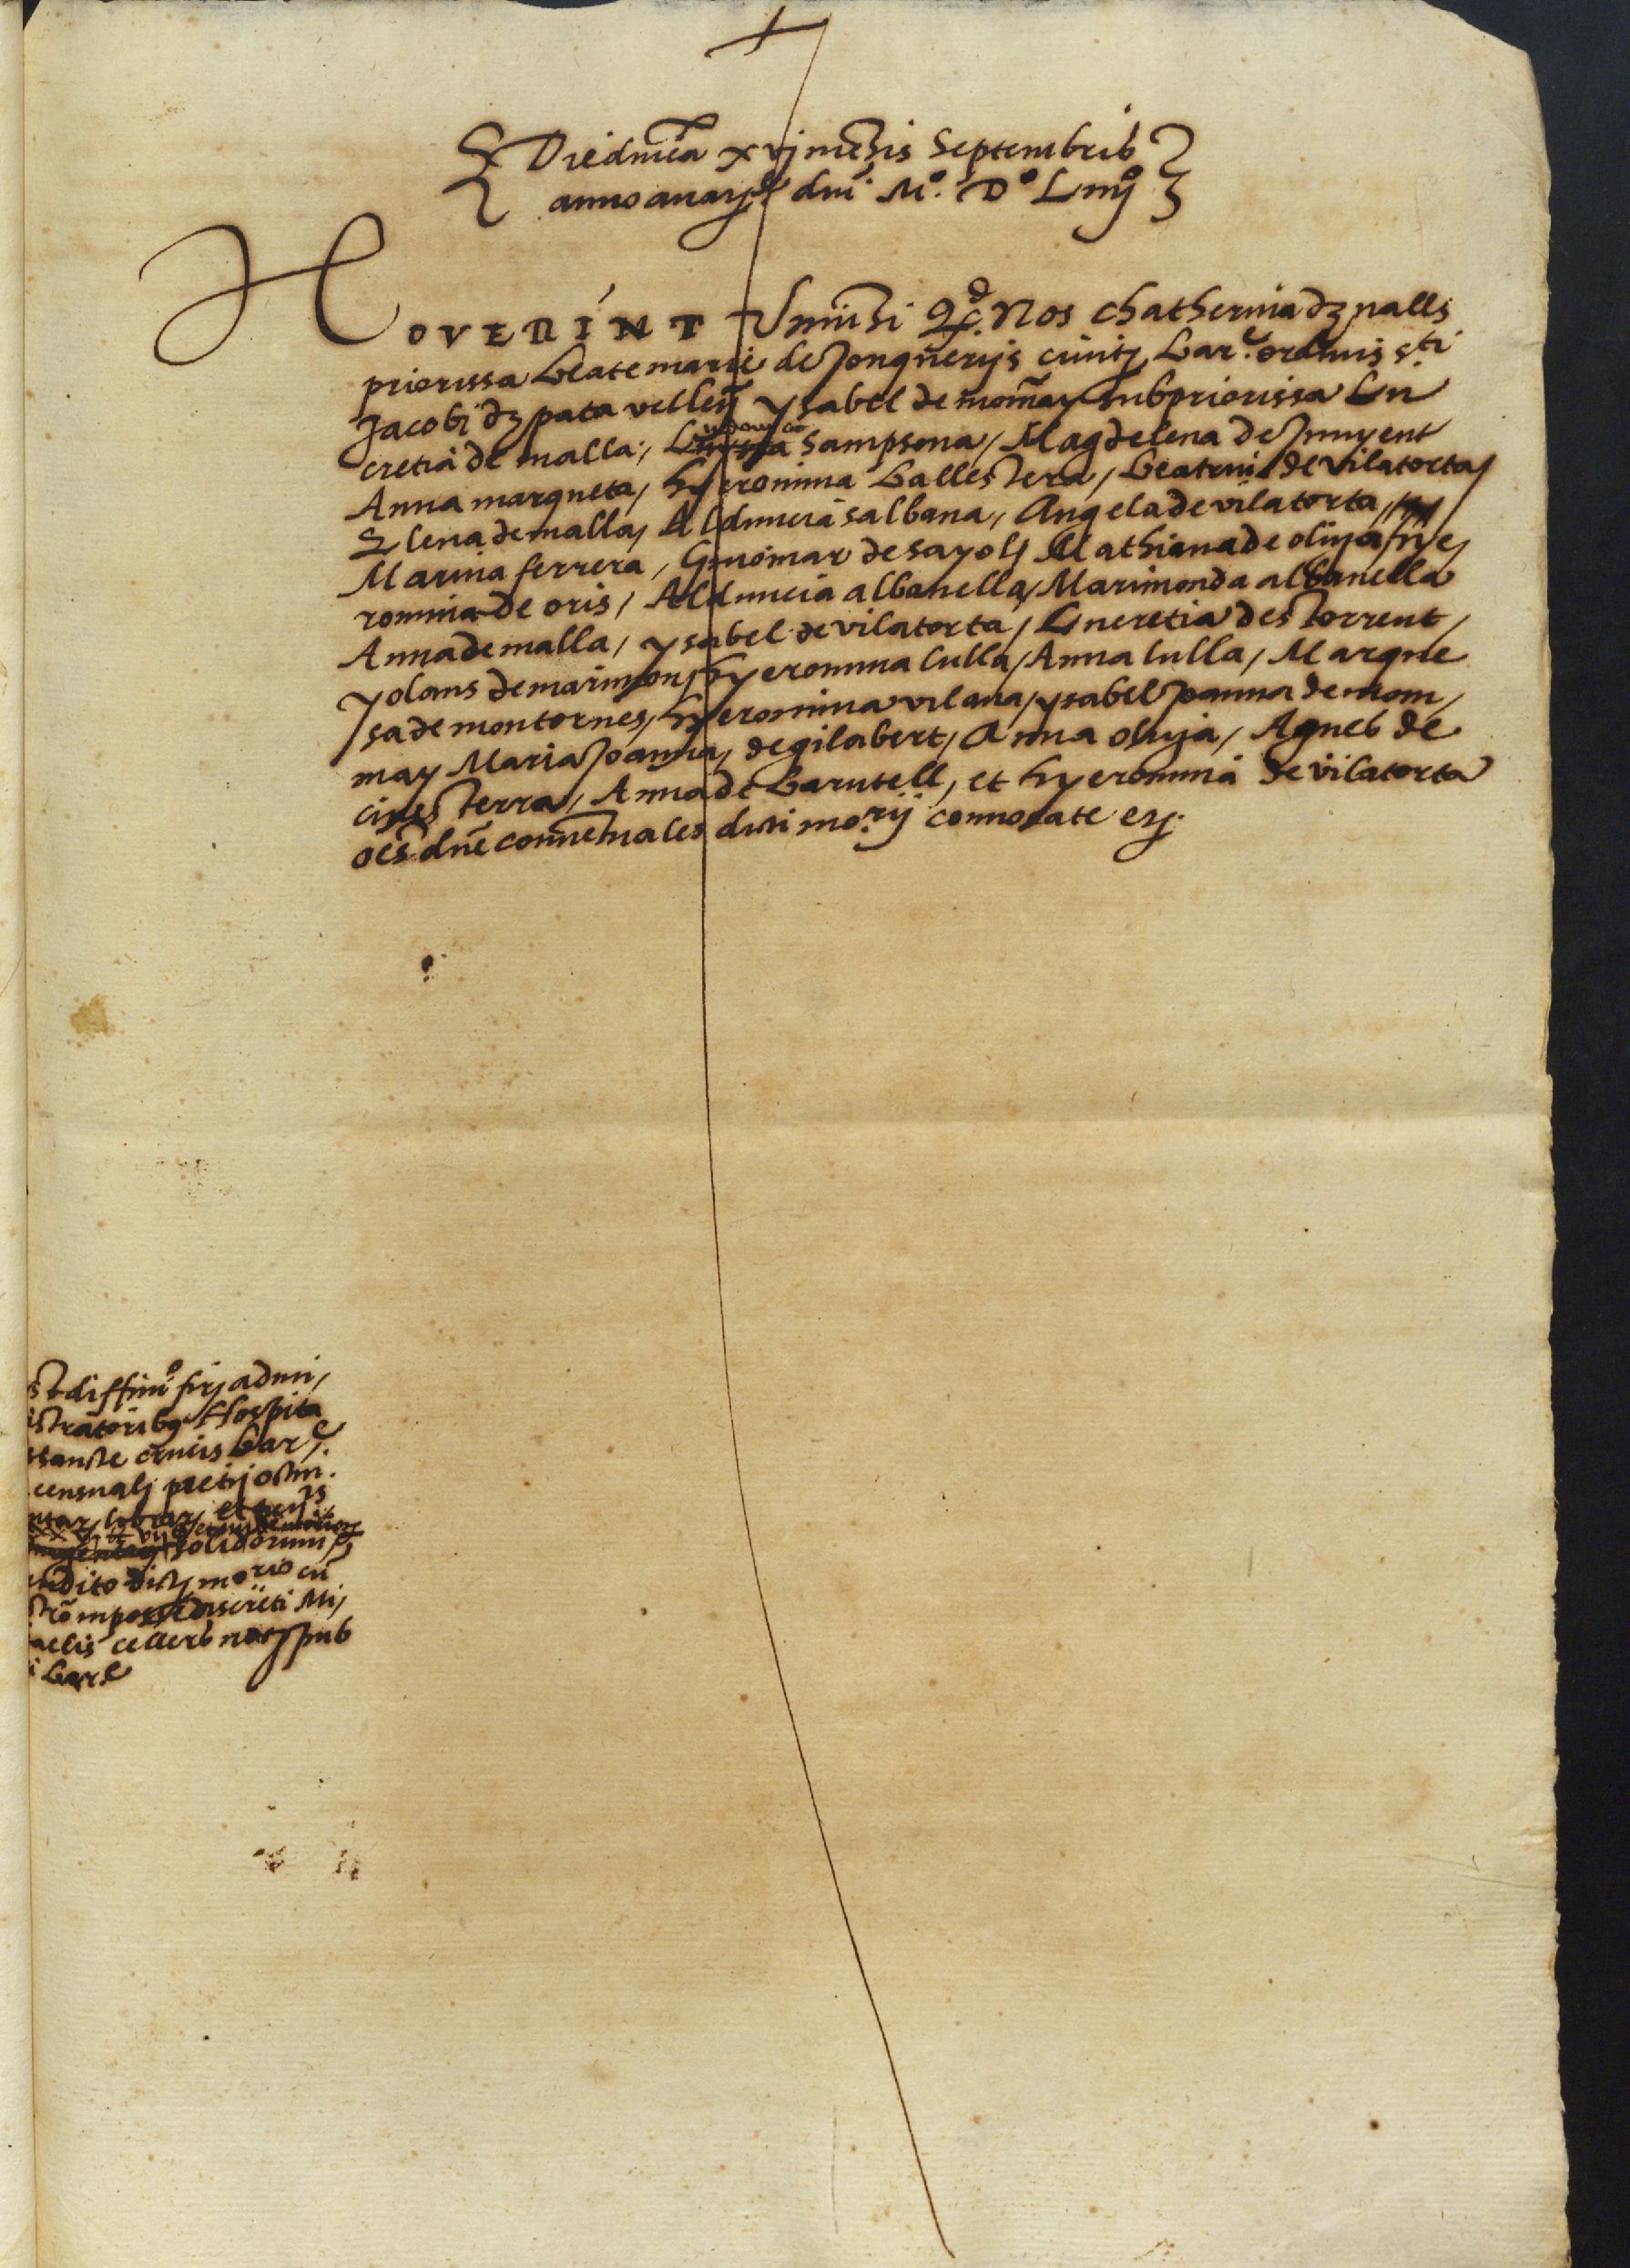 Die dnīca xvj mēsis Septembris
anno a natē dnī Mº. Dº Liiijº
NOVERINT Vniūsi qd. Nos Chatherina dz palls
priorissa beate marie de Jonquerijs ciuitʒ barᵉ. ordinis sᵗⁱ
Jacobi dʒ pata vellen̄ ysabel de momay subpriorissa Lu
cretia de malla, Ludouica Sampsona, Magdelena de Junyent
Anna marqueta, hyeronima ballestera, beatriu de vilatorta,
Elena de malla, Alduncia salbana, Angela de vilatorta,
Marina ferrera, Guiomar de sayol, Mathiana de oliuja, hye,
ronima de oris, Alduncia albanella, Marimonda albanella
Anna de malla, ysabel de vilatorta, Lucretia des torrent,
yolans de marimon, hyeronima lulla, Anna lulla, Marque
sa de montornes, hyeronima vilana, ysabel Joanna de mom,
may Maria Joanna, de gilabert, Anna oluja, Agnes de
cines terra, Anna de barutell, et hyeronima de vilatorta
oēs dnē conuētuales dicti moʳⁱʲ conuocate etʒ.
st diffinº firʒ admi,
istratoribꝫ Hospita
sancte crucis barᵉ.
censualʒ pretij octin.
solidorum
dicto dictʒ moʳⁱᵒ cū
in posse discreti Mi,
aelis cellers notʒ pub
i barᵉ